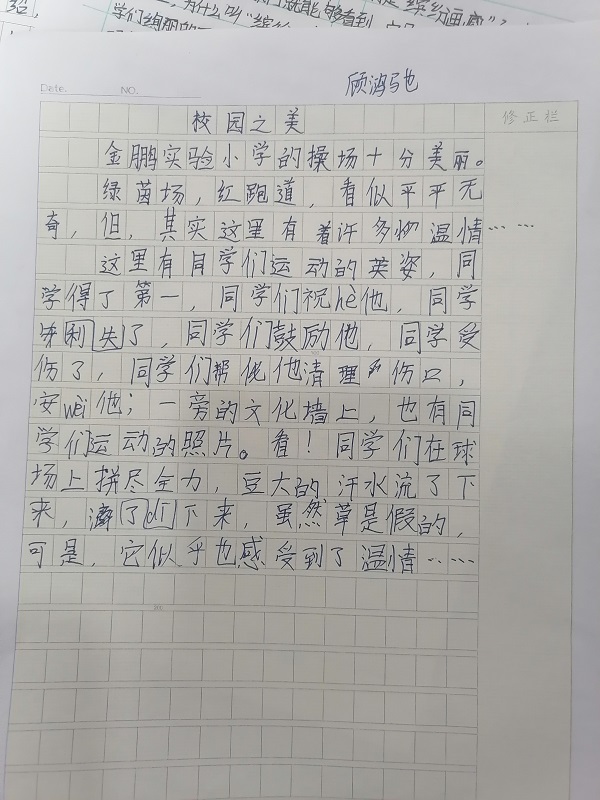 学们绚丽的
为什么叫“缤纷
就能够看到
缤纷画廊”
Date. NO.
顾鸿驰
校园之美
修正栏
金鹏实验小学的操场十分美丽。
绿茵场，红跑道，看似平平无
奇，但，其实这里有着许多的温情……
这里有同学们运动的英姿，同
学得了第一，同学们祝hè他，同学
失利了，同学们鼓励他，同学受
伤了，同学们帮他清理伤口，
安wèi他；一旁的文化墙上，也有同
学们运动的照片。看！同学们在球
场上拼尽全力，豆大的汗水流了下
来，了dī下来，虽然草是假的，
可是，它似乎也感受到了温情……